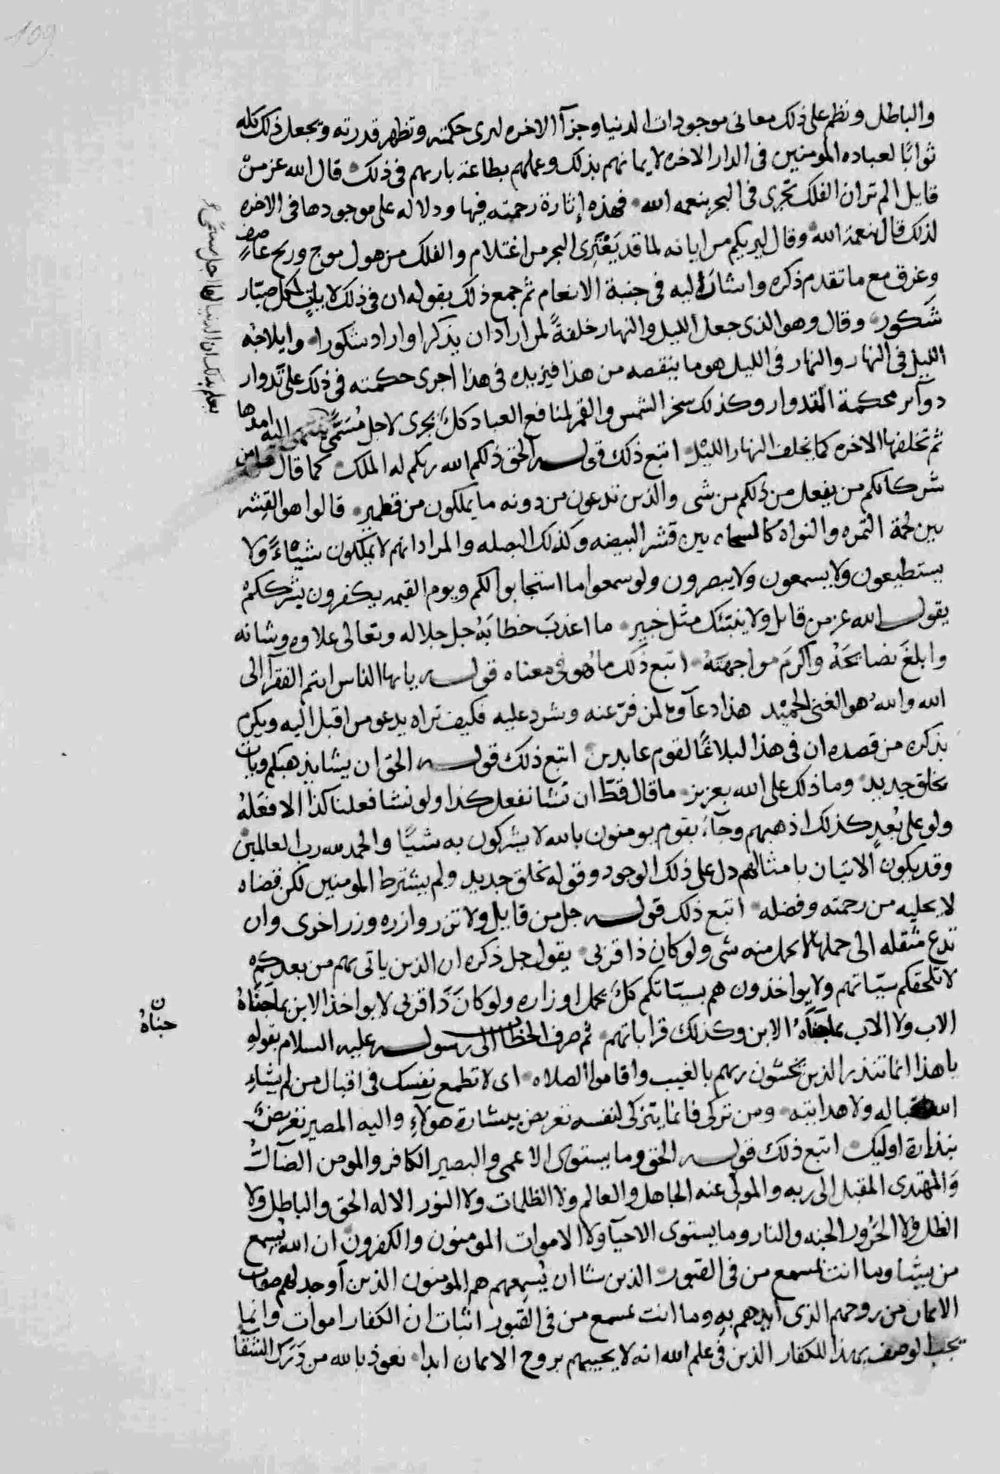 109
والباطل ونظم على ذلك معاني موجودات الدنيا وجزآ الاخره ليرى حكمته وتظهر قدرته ويجعل ذلك كله
ثوابًا لعباده المومنين في الدار الاخره لايمانهم بذلك وعملهم بطاعة بارىهم في ذلك قال الله عز من
قايل الم تر ان الفلك تجرى في البحر بنعمه الله فهذه إثارة رحمته فيها ودلاله على موجودها في الاخره
لذلك قال بنعمة الله وقال ليريكم من اياته لما قد يَعْتَرِى البحر من اغتلام والفلك من هول موج وريح عاصفٍ
وغرق مع ما تقدم ذكره واشار اليه في جنبة الانعام ثم جمع ذلك بقوله ان في ذلك لايات لكل صبّار
شَكُور وقال وهو الذى جعل الليل والنهار خلفةً لمن اراد ان يذكر او اراد شكورا وايلاجه
الليل في النهار والنهار في الليل هو ما ينقصه من هذا فيزيده في هذا اجرى حكمته في ذلك على تدوار
دوآير محكمة المقدوار وكذلك سخر الشمس والقمر لمنافع العباد كلٌ يجرى لاجل مُسَمًّى ينتهى اليه امدها
ثم تخلفها الاخره كما يخلف النهار الليل اتبع ذلك قوله الحق ذلكم الله ربكم له الملك كما قال هل من
شركائكم من يفعل من ذلكم من شى والذين تدعون من دونه ما يملكون من قطمير قالوا هو القِشر
بين لحمة التمره والنواة كالسحاء بين قشر البيضه وكذلك البصله والمراد انهم لا يملكون شيئاً ولا
يستطيعون ولا يسمعون ولا يبصرون ولو سمعوا ما استجابوا لكم ويوم القيمه يكفرون بشرككمْ
يقول الله عز من قايل ولا ينبئك مثل خبير ما اعذبَ خطابَهُ جل جلاله وتعالى علاوه وشانه
وابلغَ نصائحَهُ واكرمَ مواجهتَهُ اتبع ذلك ما هو في معناه قوله يايها الناس انتم الفقرآ الى
الله واللهُ هو الغنىّ الحميد هذا دعآوه لمن فرّ عنه وشرد عليه فكيف تراه يدعو من اقبل اليه ويكرم
بذكره من قصده ان في هذا لبلاغًا لقوم عابدين اتبع ذلك قوله الحق ان يشا يذهبكم ويات
بخلق جديد وما ذلك على الله بعزيز ما قال قطّ ان نشا نفعل كذا ولو نشا فعلنا كذا الا فعَلهُ
ولو على بُعدٍ كذلك اذهبهم وجآء بقوم يومنون بالله لا يشركون به شيئًا والحمد لله رب العالمين
وقد يكون الاتيان بامثالهم دل على ذلك الوجود وقوله بخلق جديد ولم يشترط المومنين لكن قضاه
لا يخليه من رحمته وفضله اتبع ذلك قوله جل من قايل ولا تزر وازره وزر اخرى وان
تدع مثقله الى حملها لا يحمل منه شى ولو كان ذا قربى يقول جل ذكره ان الذين ياتى بهم من بعدكم
لا تلحقكم سيّاتهم ولا يواخذون هم بسيّاتكم كلٌ يحمل اوزاره ولو كان ذَا قربى لا يواخذ الابن بما جناهُ
الاب ولا الاب بما جناهُ الابن وكذلك قراباتهم ثم صرف الخطاب الى رسوله عليه السلام بقولهِ
يا هذا انما تنذر الذين يخشون ربهم بالغيب واقاموا الصلاه اى لا تطمع نفسك في اقبال من لم يشاءِ
الله اقباله ولا هدايته ومن تزكى فانما يتزكى لنفسه تعريض ببشارة هولآءِ واليه المصير تعريضٌ
بنذارة اوليك اتبع ذلك قوله الحق وما يستوى الاعمى والبصير الكافر والمومن الضآلُّ
والمهتدى المقبل الى ربه والمولّى عنه الجاهل والعالم ولا الظلمات ولا النور الاله الحق والباطل ولا
الظل ولا الحَرُور الجنه والنار وما يستوى الاحيآ ولا الاموات المومنون والكفرون ان الله يُسمع
من يشا وما انت بمسمع من في القبور الذين شا ان يُسمعهم هم المومنون الذين اوجد لهم صفات
الايمان من روحهم الذى ايدهم به وما انت بمسمع من في القبور اثبات ان الكفار اموات وانما
يجب الوصف بهذا للكفار الذين في علم الله انه لا يحييهم بروح الايمان ابدا نعوذ بالله من دَرَك الشقآ
ن
جناهُ